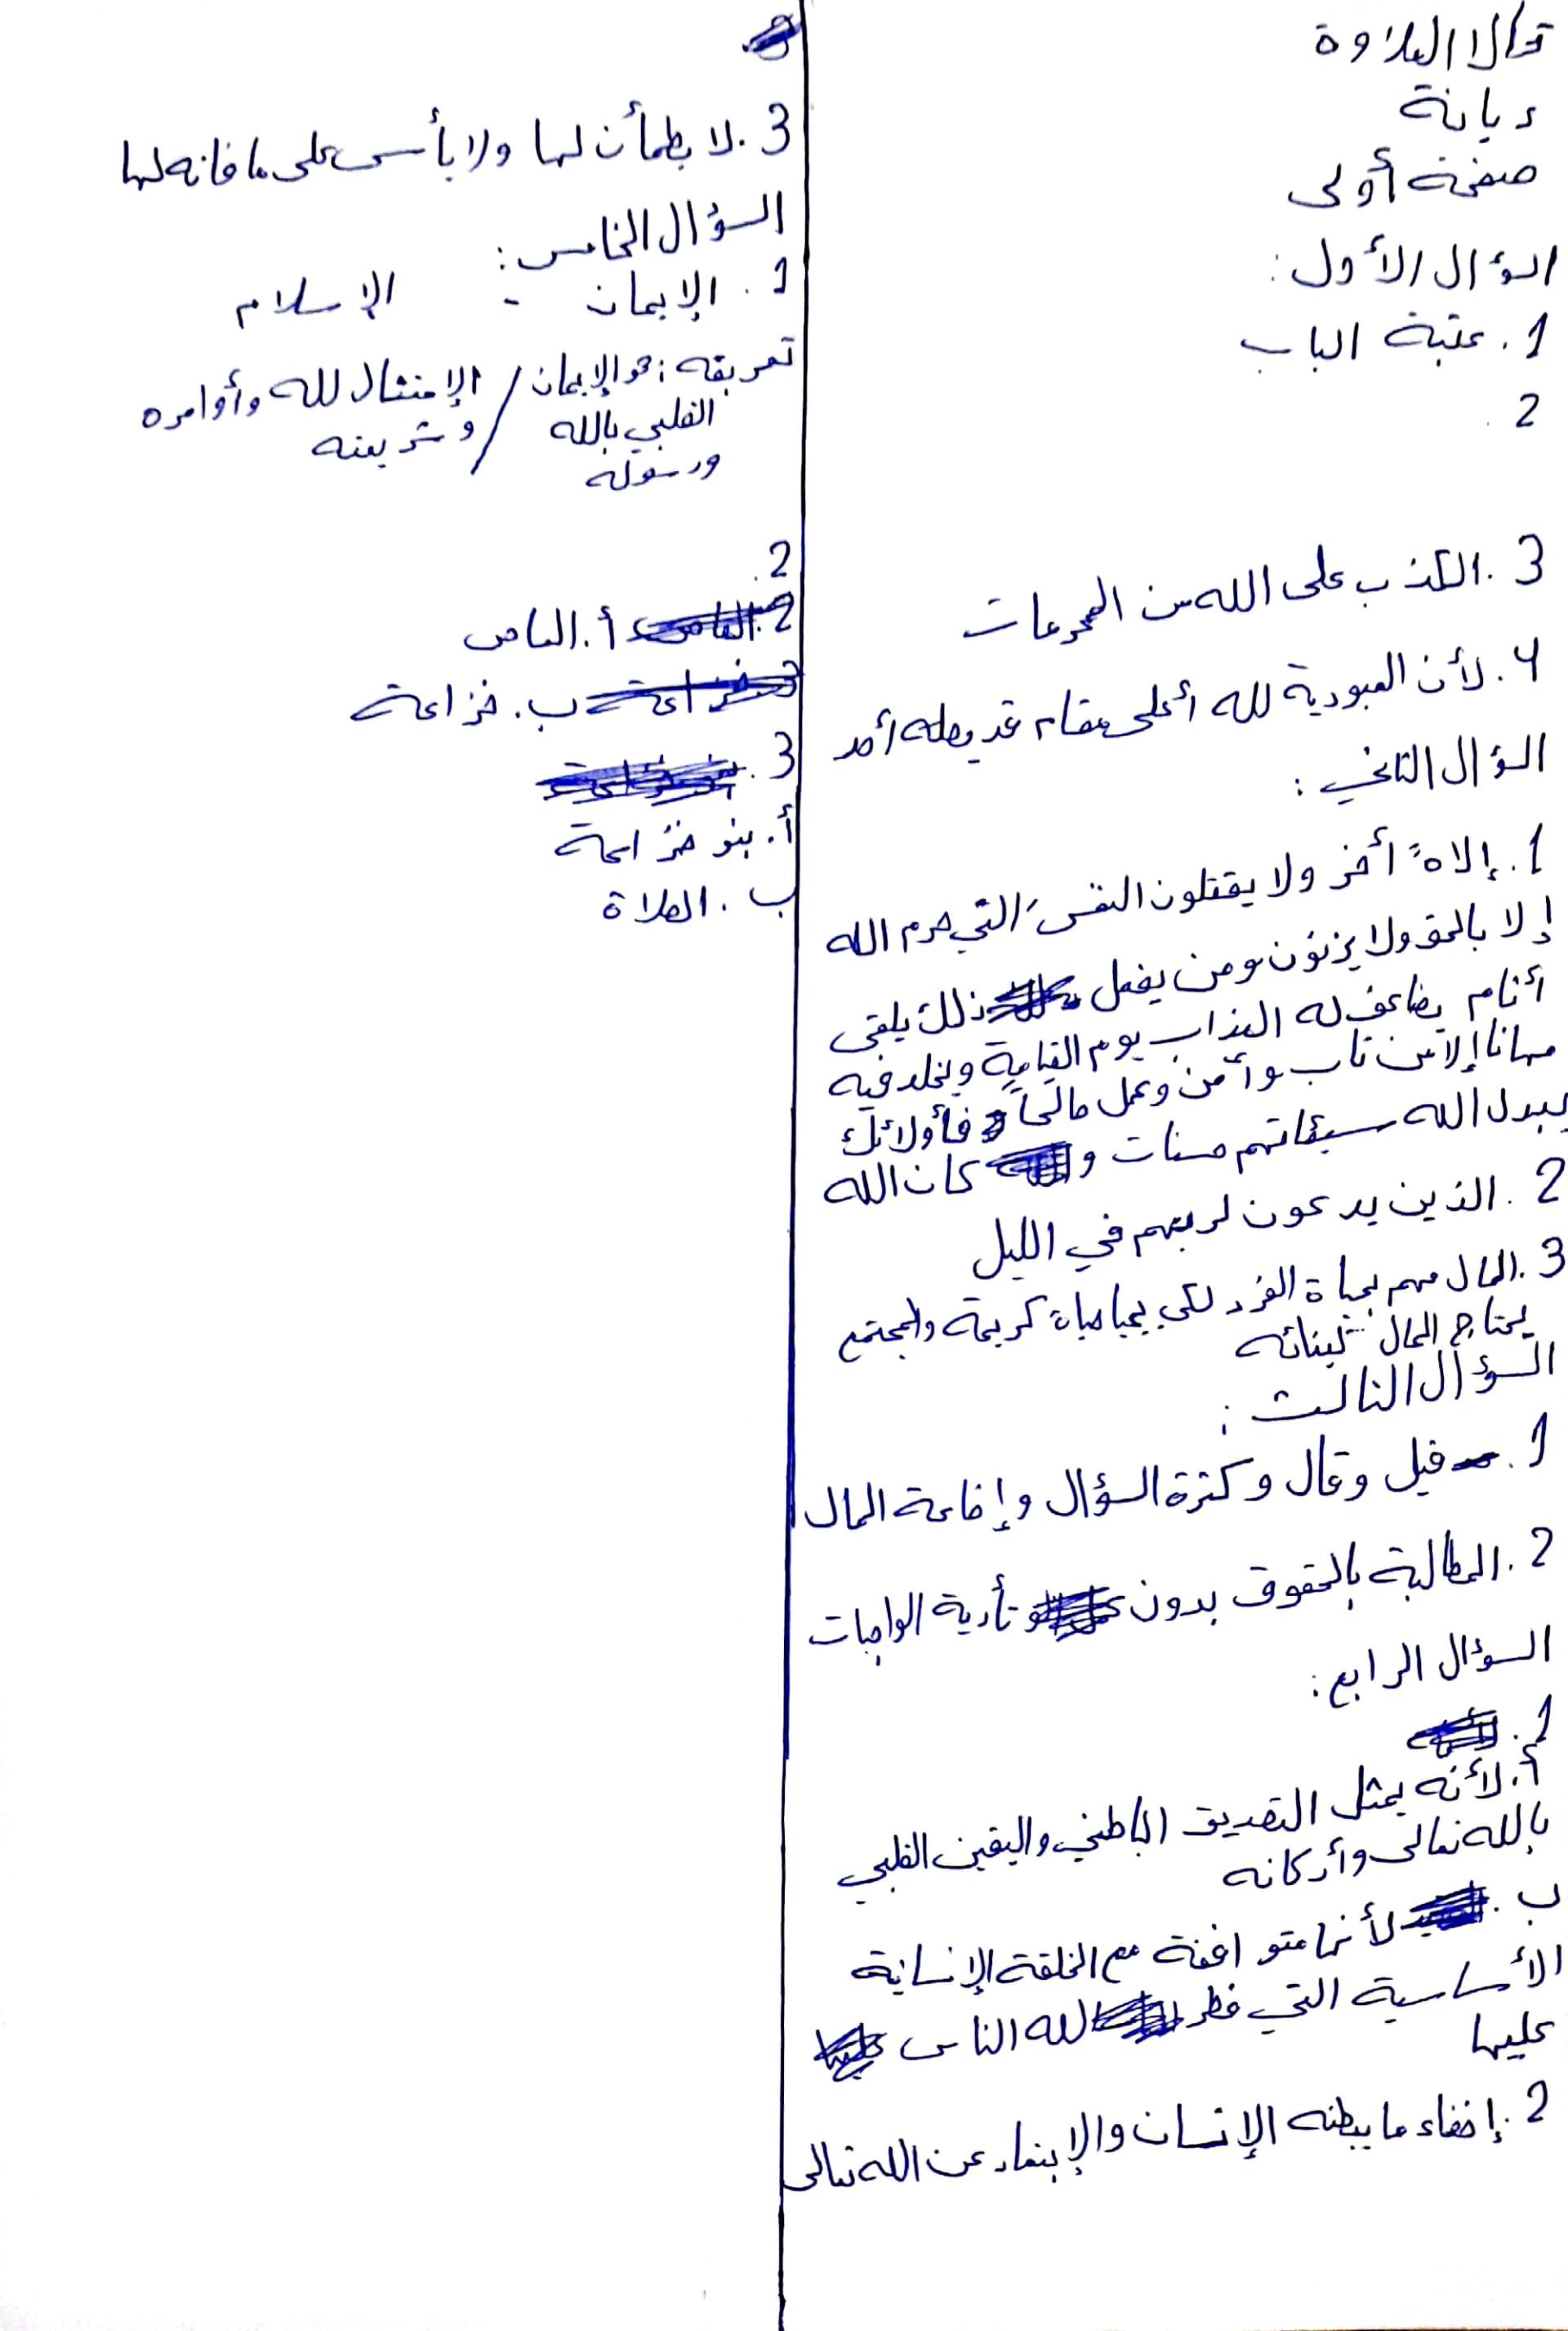 ديانة
صفحة أولى
السؤال الأول:
1. عتبة الباب
2.
3. الكذب على الله من المحرمات
4. لأن العبودية لله أعلى مقام قد يصله أحد
السؤال الثاني:
1. إلاهً أخر ولا يقتلون النفسَ التي حرم الله
إلا بالحق ولا يزنون ومن يفعل ذلك يلقى
أثام يضاعف له العذاب يوم القيامة ويخلد فيه
مهانا إلا من تاب وأمن وعمل صالحاً فأولائك
يبدل الله سيئاتهم حسنات و كان الله
2. الذين يدعون لربهم في الليل
3. المال مهم بحياة الفرد لكي يحيا حياة كريمة والمجتمع
يحتاج المال لبنائه
السؤال الثالث:
1. قيل وقال وكثرة السؤال وإضاعة المال
2. المطالبة بالحقوق بدون تأدية الواجبات
السؤال الرابع:
1.
أ. لأنه يمثل التصديق الباطني واليقين القلبي
بالله تعالى وأركانه
ب. لأنها متوافقة مع الخلقة الإنسانية
الأساسية التي فطر الله الناس
عليها
2. إخفاء ما يبطنه الإنسان والإبتعاد عن الله تعالى
3. لا يطمأن لها ولا يأسى على ما فاته لها
السؤال الخامس:
1. الإيمان - الإسلام
تعريفه: هو الإيمان / الإمتثال لله وأوامره
القلبي بالله / وشريعته
ورسوله
2.
أ. العاص
ب. خزاعة
3.
أ. بنو خزاعة
ب. الصلاة